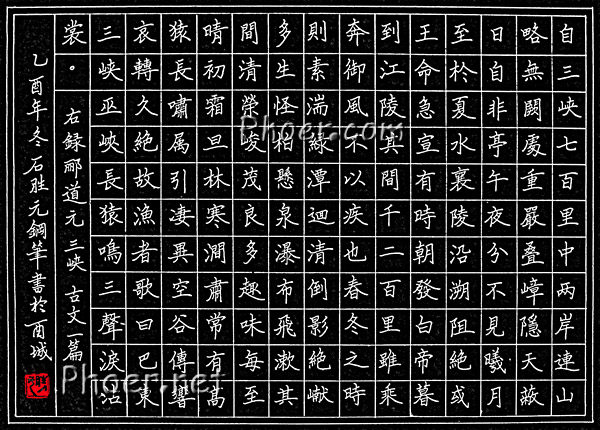 自三峡七百里中两岸連山
略無闕處重嚴叠嶂隱天蔽
日自非亭午夜分不見曦月
至於夏水襄陵沿溯阻絶或
王命急宣有時朝發白帝暮
到江陵其間千二百里雖乘
奔御風不以疾也春冬之時
則素湍緑潭迴清倒影絶巘
多生怪柏懸泉瀑布飛漱其
間清榮峻茂良多趣味每至
晴初霜旦林寒澗肅常有髙
猿長嘯属引凄異空谷傳響
哀轉久絶故漁者歌曰巴東
三峡巫峡長猿鳴三聲淚沾
裳。
右録酈道元三峡古文一篇
乙酉年冬石胜元鋼筆書於酉城
Phoer.com
Phoer.net